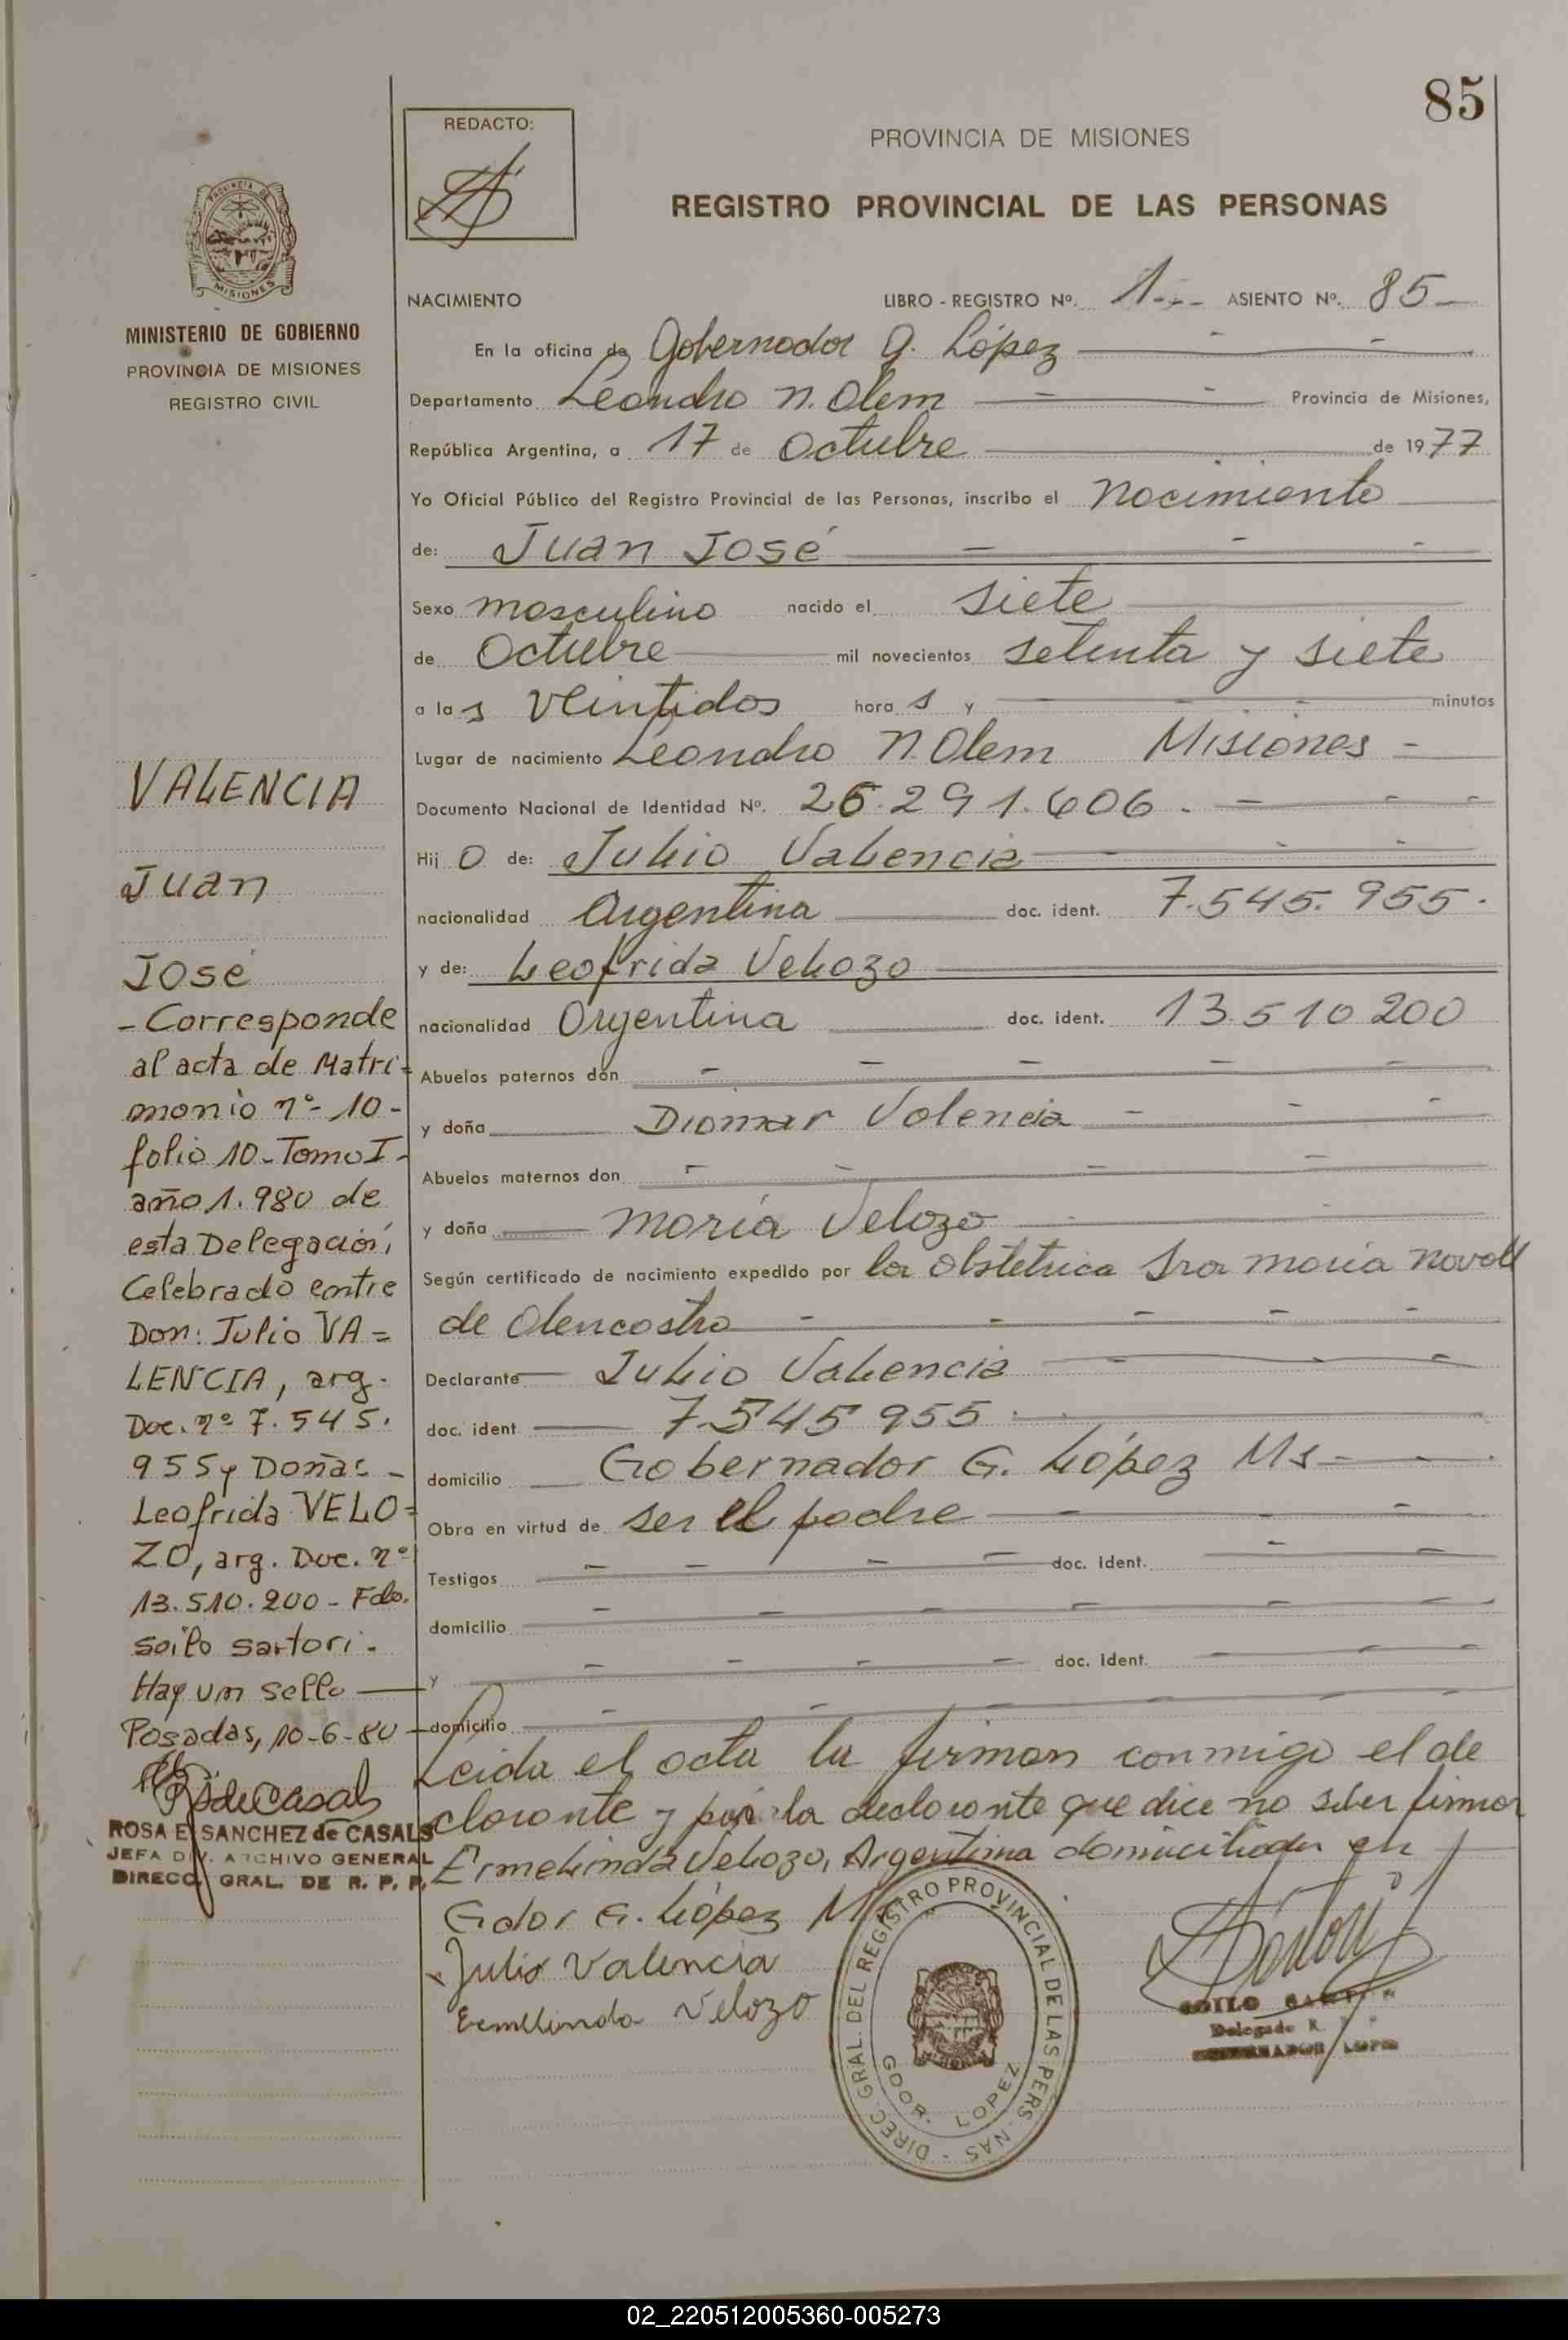 85
REDACTO:
PROVINCIA DE MISIONES
REGISTRO PROVINCIAL DE LAS PERSONAS
PROVINCIA DE MISIONES
MINISTERIO DE GOBIERNO
PROVINCIA DE MISIONES
REGISTRO CIVIL
NACIMIENTO LIBRO - REGISTRO Nº. 1 ASIENTO Nº. 85
En la oficina de Gobernador G. López
Departamento Leandro N. Alem Provincia de Misiones,
República Argentina, a 17 de Octubre de 1977
Yo Oficial Público del Registro Provincial de las Personas, inscribo el nacimiento
de: Juan José
Sexo masculino nacido el siete
de Octubre mil novecientos setenta y siete
a las veintidos horas y minutos
Lugar de nacimiento Leandro N. Alem Misiones
Documento Nacional de Identidad Nº. 26.291.606.
Hijo de: Julio Valencia
nacionalidad Argentina doc. ident. 7.545.955.
y de: Leofrida Velozo
nacionalidad Argentina doc. ident. 13.510.200
Abuelos paternos don
y doña Diomar Valencia
Abuelos maternos don
y doña María Velozo
Según certificado de nacimiento expedido por la obstetrica Sra maria
de Alencastro
Declarante Julio Valencia
doc. ident 7.545 955.
domicilio Gobernador G. López Ms
Obra en virtud de ser el padre
Testigos doc. ident.
domicilio
y doc. ident.
domicilio
Leida el acta la firman conmigo el de
clarante y por la declarante que dice no saber firmar
Ermelinda Velozo, Argentina domiciliada en
Gdor G. López Ms
Julio Valencia
Ermelinda Velozo
DIREC. GRAL. DEL REGISTRO PROVINCIAL DE LAS PERSONAS
GDOR. LOPEZ
SOILO SARTORI
Delegado R. P. P.
GOBERNADOR LOPEZ
VALENCIA
Juan
José
- Corresponde
al acta de Matri=
monio nº 10-
folio 10-Tomo I-
año 1.980 de
esta Delegación,
Celebrado entre
Don: Julio VA=
LENCIA, arg.
Doc. nº 7.545.
955 y Doña:
Leofrida VELO=
ZO, arg. Doc. nº
13.510.200 - Fdo.
Soilo Sartori.
Hay un sello
Posadas, 10-6-80
RSdeCasals
ROSA E SANCHEZ de CASALS
JEFA DIV. ARCHIVO GENERAL
DIRECC. GRAL. DE R. P. P.
02_220512005360-005273